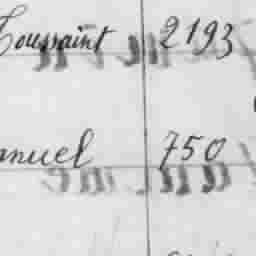 Toussaint 2193
anuel 750